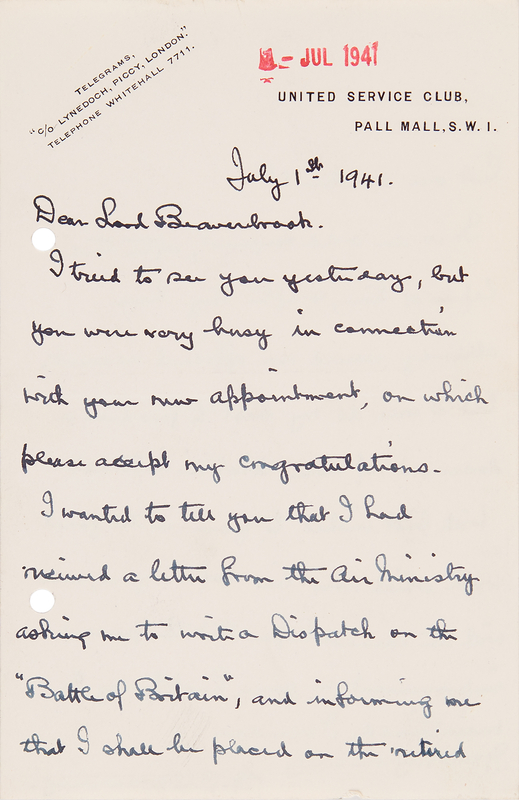 TELEGRAMS,
"C/O LYNEDOCH, PICCY, LONDON."
TELEPHONE WHITEHALL 7711.
1 - JUL 1941
UNITED SERVICE CLUB,
PALL MALL, S.W. 1.
July 1st 1941.
Dear Lord Beaverbrook.
I tried to see you yesterday, but
you were very busy in connection
with your new appointment, on which
please accept my congratulations.
I wanted to tell you that I had
received a letter from the Air Ministry
asking me to write a Dispatch on the
"Battle of Britain", and informing me
that I shall be placed on the retired